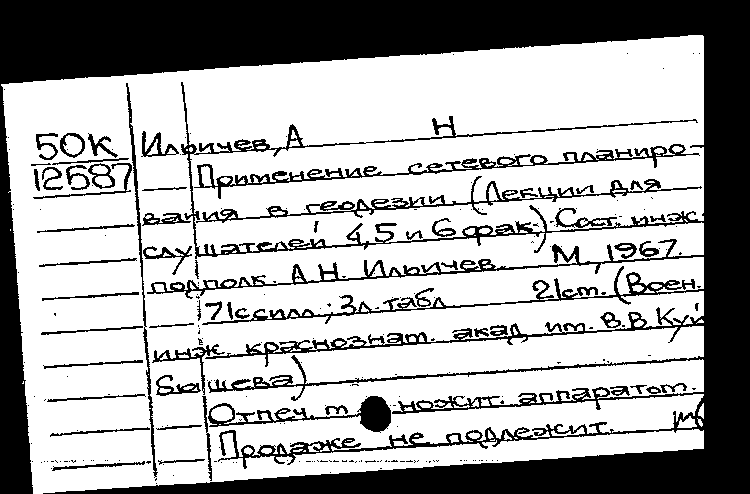 50К Ильичев, А Н
12687 Применение сетевого планиро-
вания в геодезии. (Лекции для
слушателей 4,5 и 6 фак.) Сост. инж.
подполк. А.Н. Ильичев. М., 1967.
71с с илл.; 3л. табл 21ст. (Воен.
инж. краснознам. акад им. В.В. Куй
бышева)
Отпеч. м ножит. аппаратом.
Продаже не подлежит.